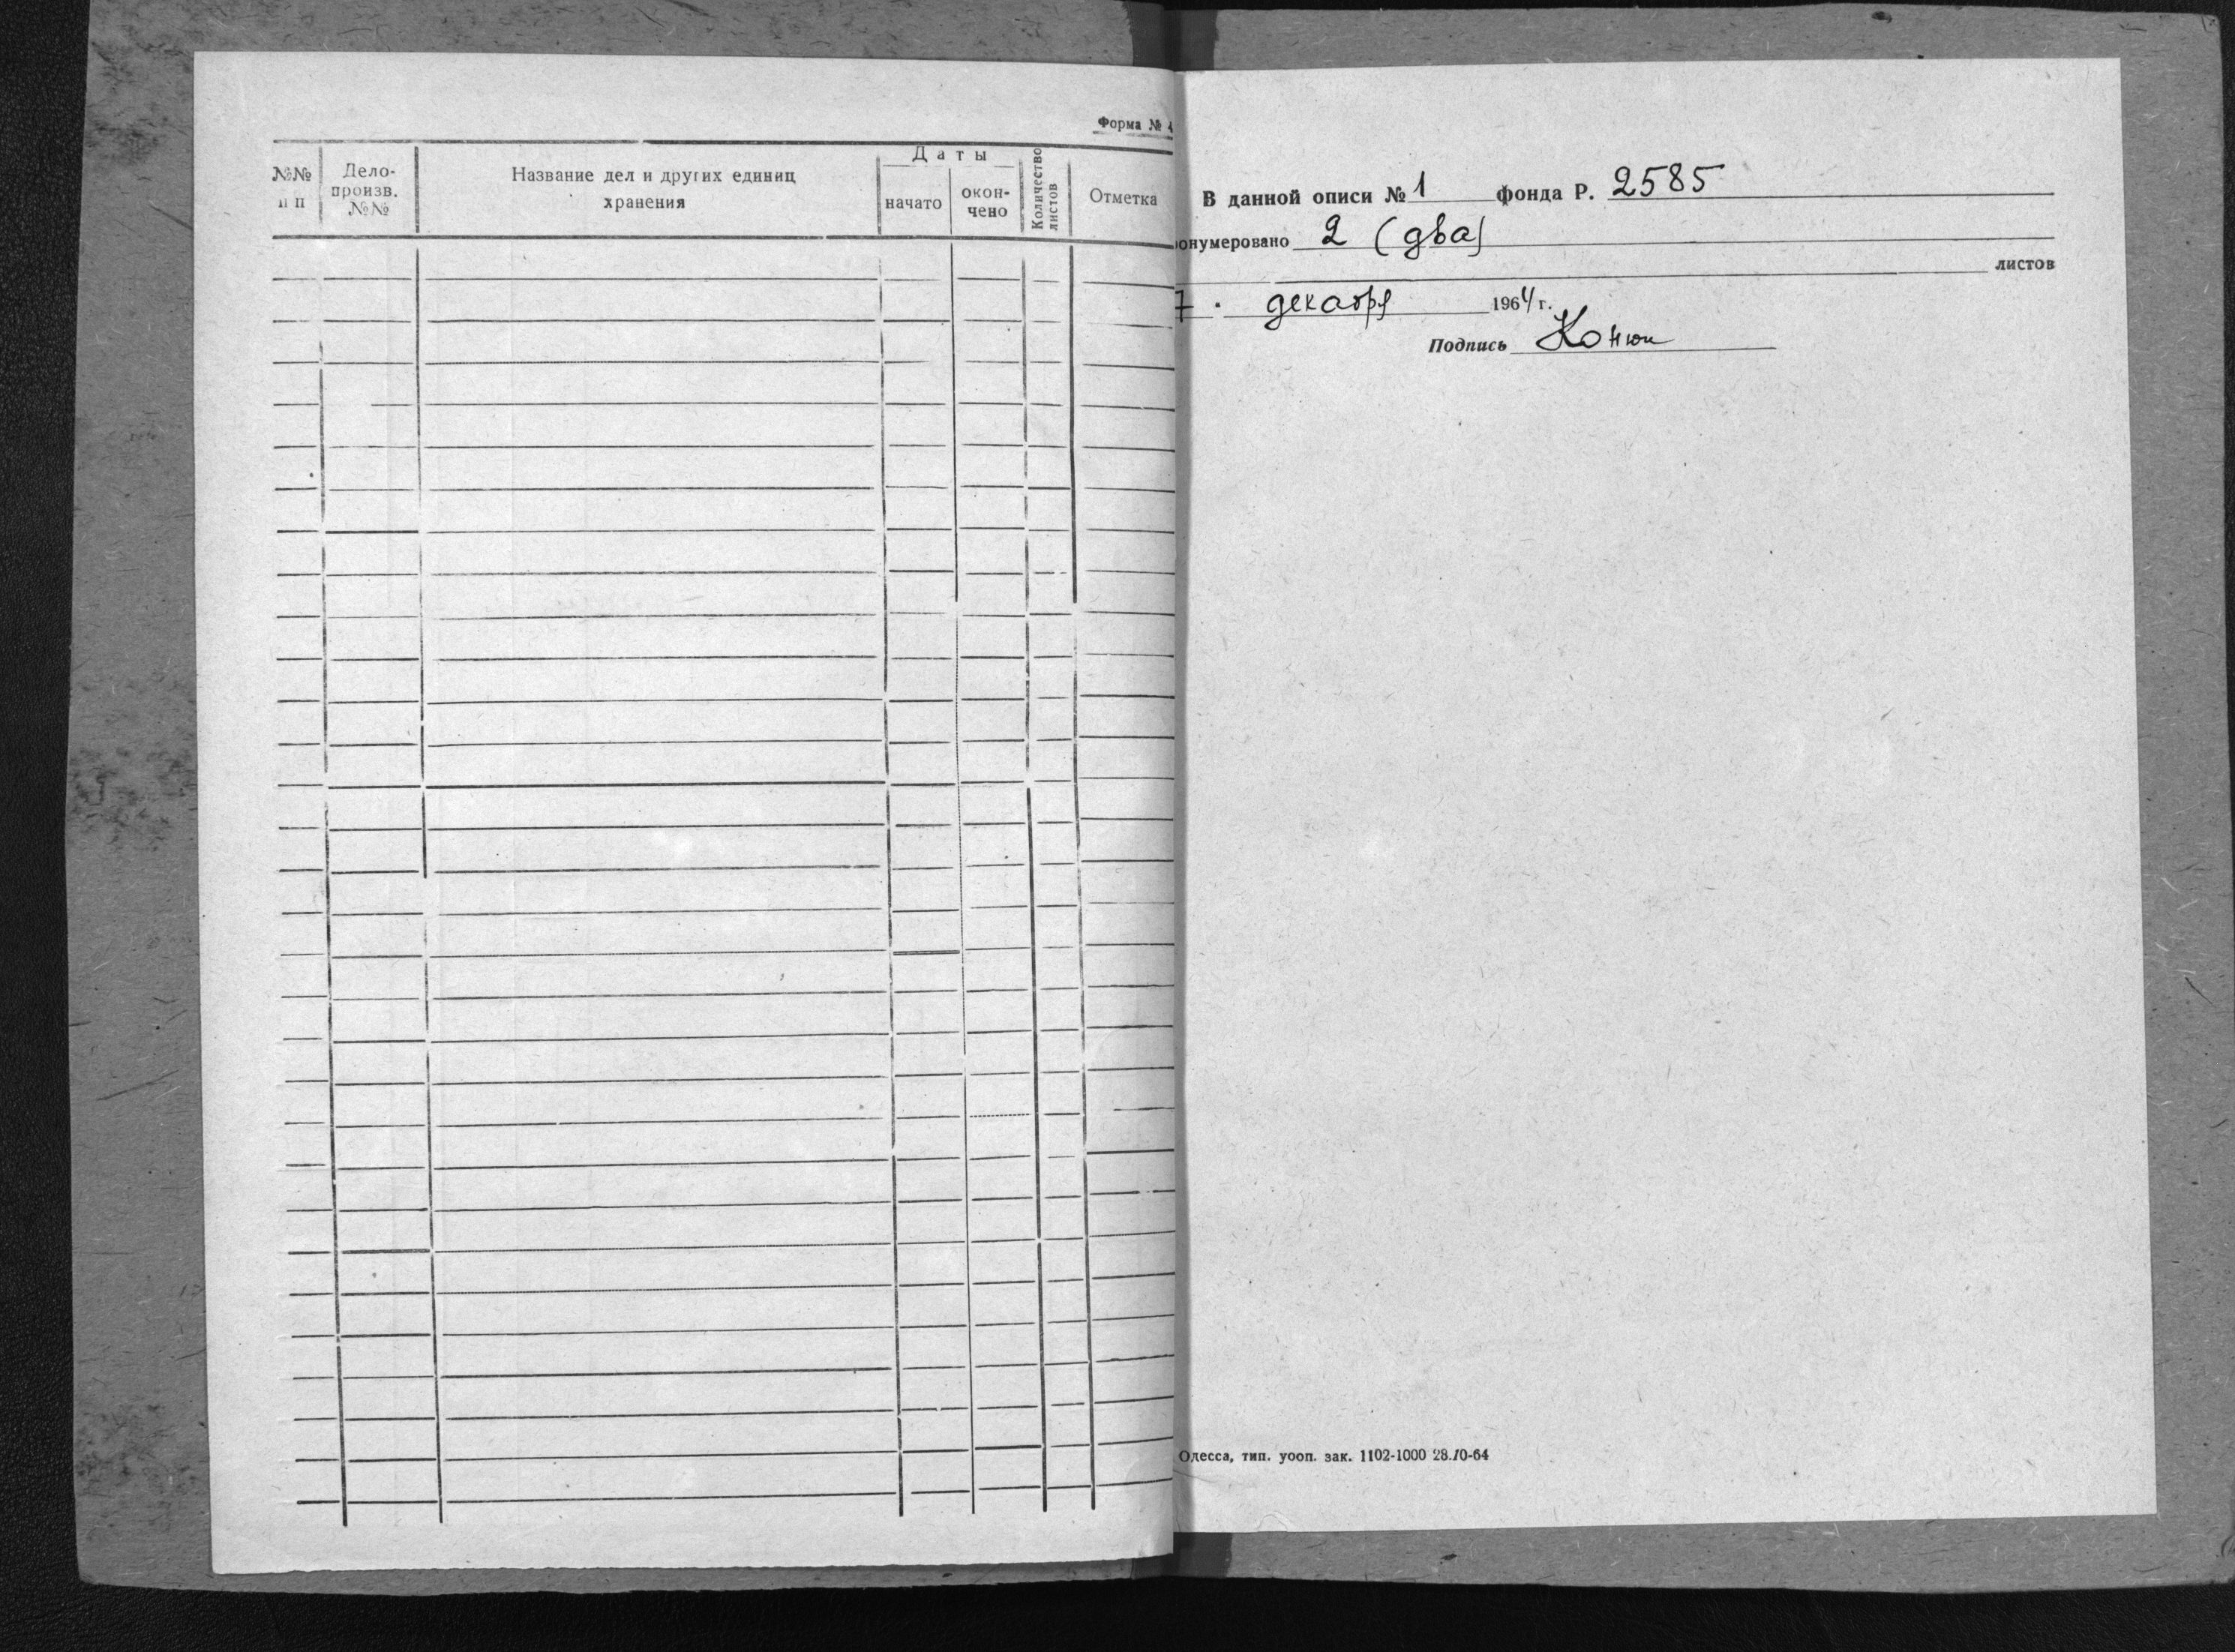 Форма №
№№ п п
Дело-произв. №№
Название дел и других единиц хранения
Даты
начато
окон-чено
Количество листов
Отметка
В данной описи № 1 фонда Р. 2585
онумеровано 2 (два)
листов
7. декабря 1964 г.
Подпись
Одесса, тип. уооп. зак. 1102-1000 28.10-64